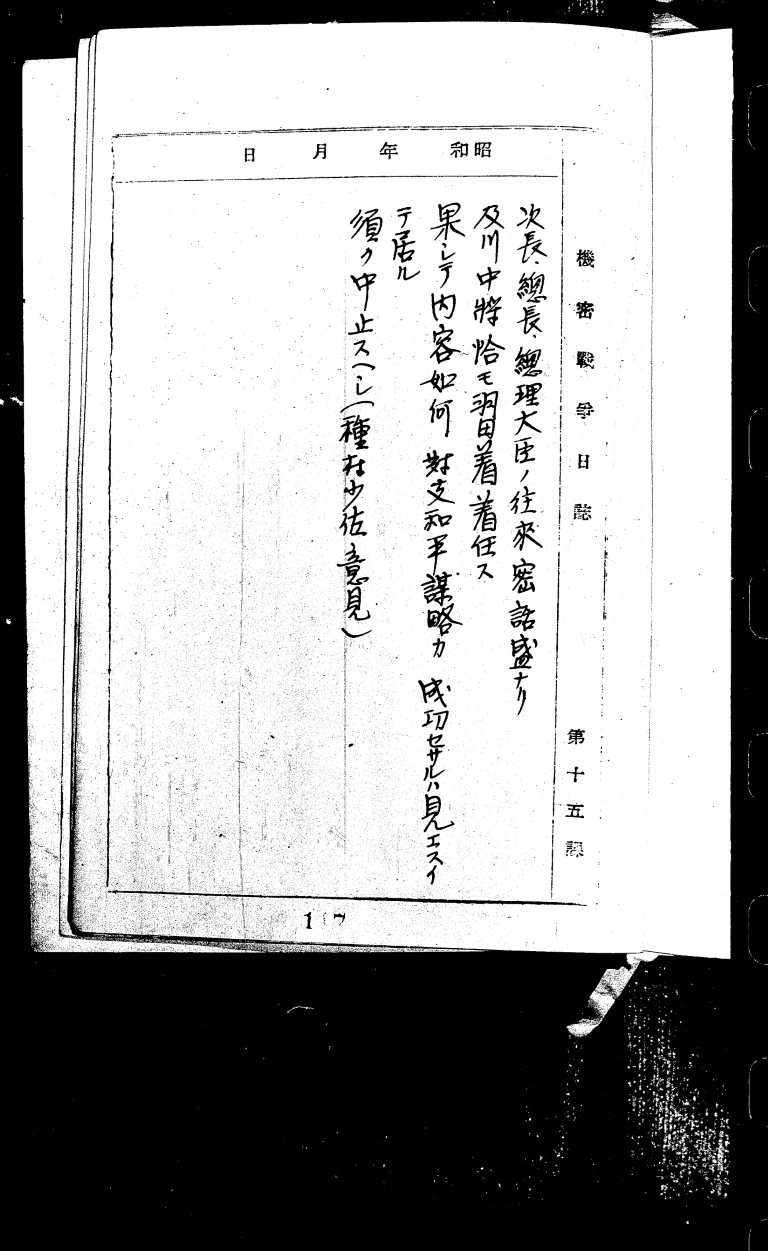 機密戰爭日誌　第十五課
昭和　年　月　日
次長、總長、總理大臣ノ往來密話盛ナリ
及川中將恰モ羽田着着任ス
果シテ内容如何　對支和平謀略カ　成功セサルハ見エスイ
テ居ル
須ク中止スヘシ（種村少佐意見）